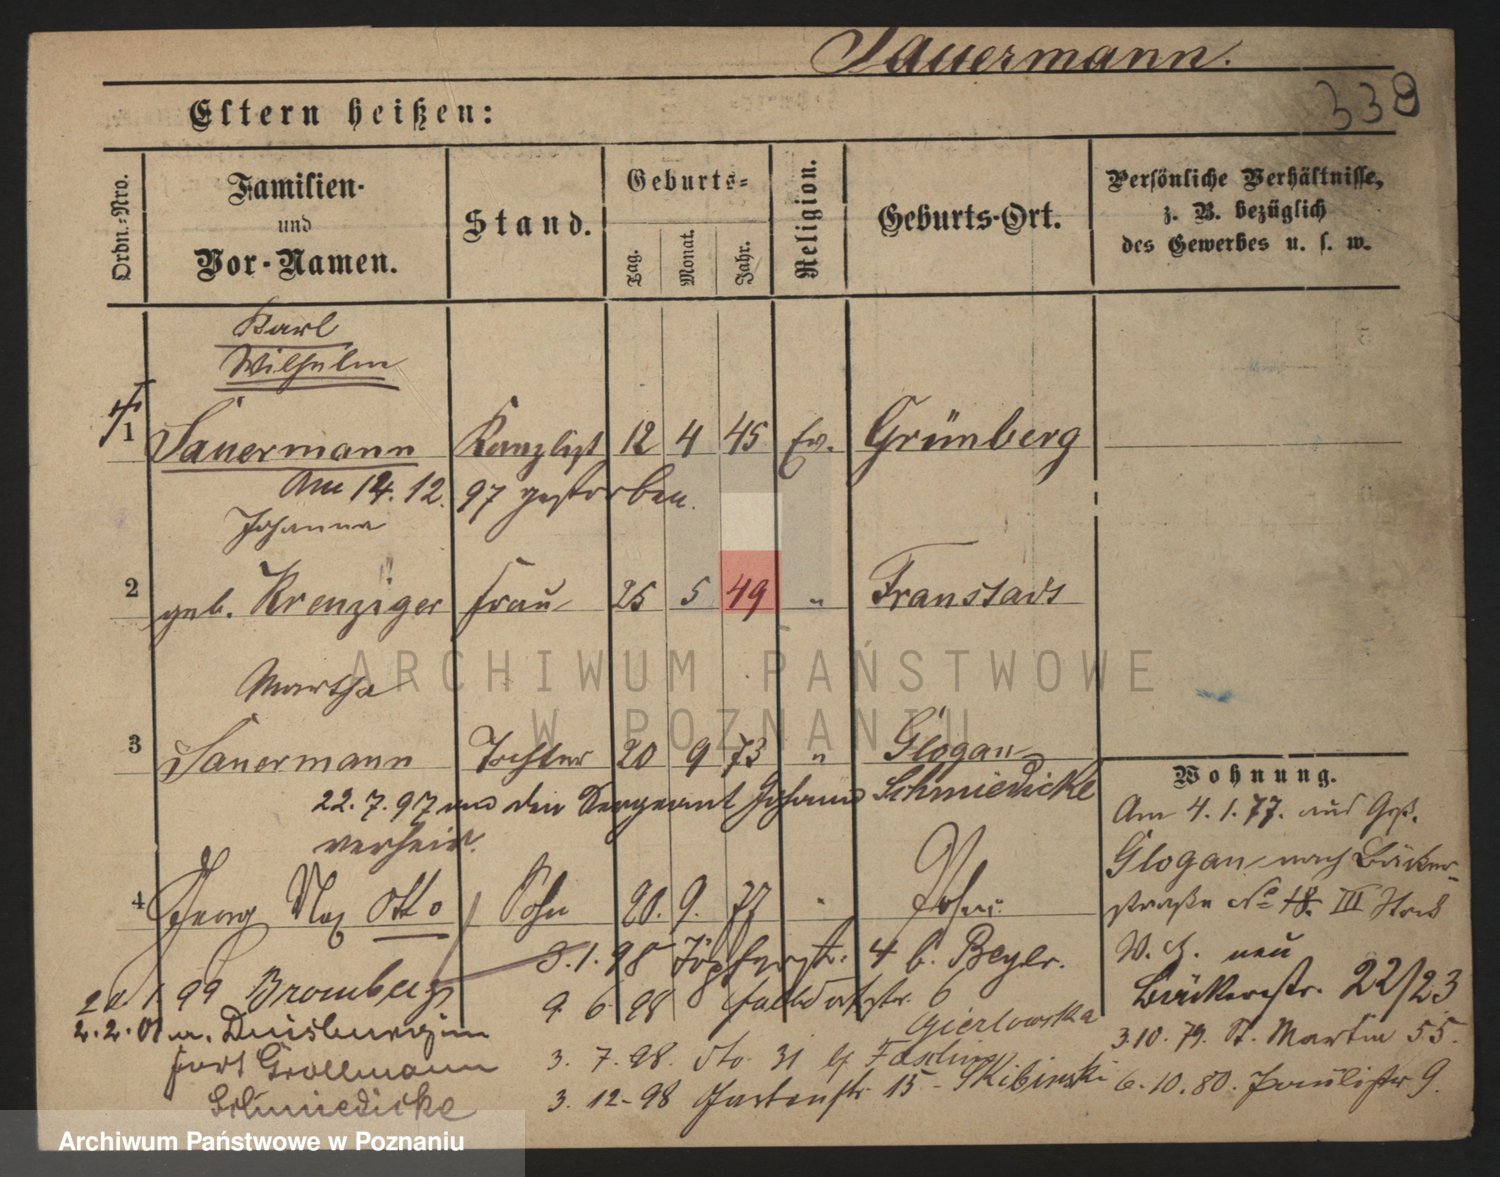 Sauermann.
338
Eltern heißen:
Ordn.-Nro.
Familien-
und
Vor-Namen.
Stand.
Geburts-
Tag.
Monat.
Jahr.
Religion.
Geburts-Ort.
Persönliche Verhältnisse,
z. B. bezüglich
des Gewerbes u. s. w.
Karl
Wilhelm
1 Sauermann Kanzlist 12 4 45 Ev. Grünberg
Am 14. 12. 97 gestorben.
Johanna
2 geb. Krenziger Frau 25 5 49 " Fraustadt
Martha
3 Sauermann Tochter 20 9 73 " Glogau
22. 7. 97 den Sergeant Johann Schmiedicke
verheir.
4 Georg Max Otto Sohn 20. 9. 77 Posen
8. 1. 98 Töpferstr. 4 b. Beyer.
2 1. 99 Bromberg
9. 6. 98 Feldstr. 6
Gierlowska
2. 2. 01 n. Duisburg im
3. 7. 98. 31 b.
fort Grollmann
3. 12. 98 Gartenstr. 15 - Skibinski
Schmiedicke
Wohnung.
Am 4. 1. 77. aus Groß.
Glogau nach Bäcker-
straße No 18. III Stock
W. ch. neu
Bäckerstr. 22/23
3. 10. 79. St. Martin 55.
6. 10. 80. Paulistr. 9.
ARCHIWUM PAŃSTWOWE
W POZNANIU
Archiwum Państwowe w Poznaniu